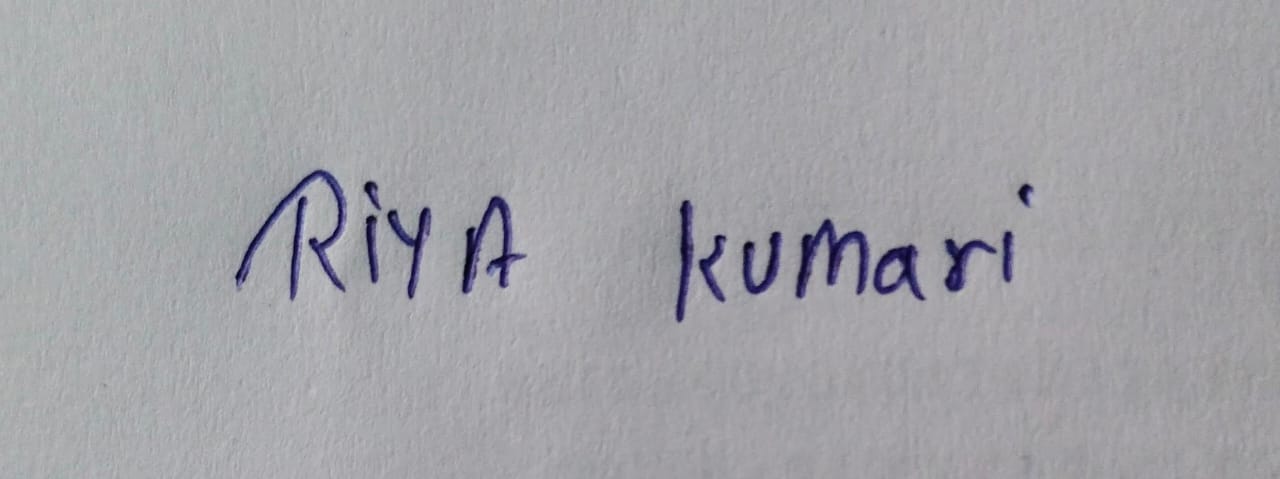 RiyA kumari